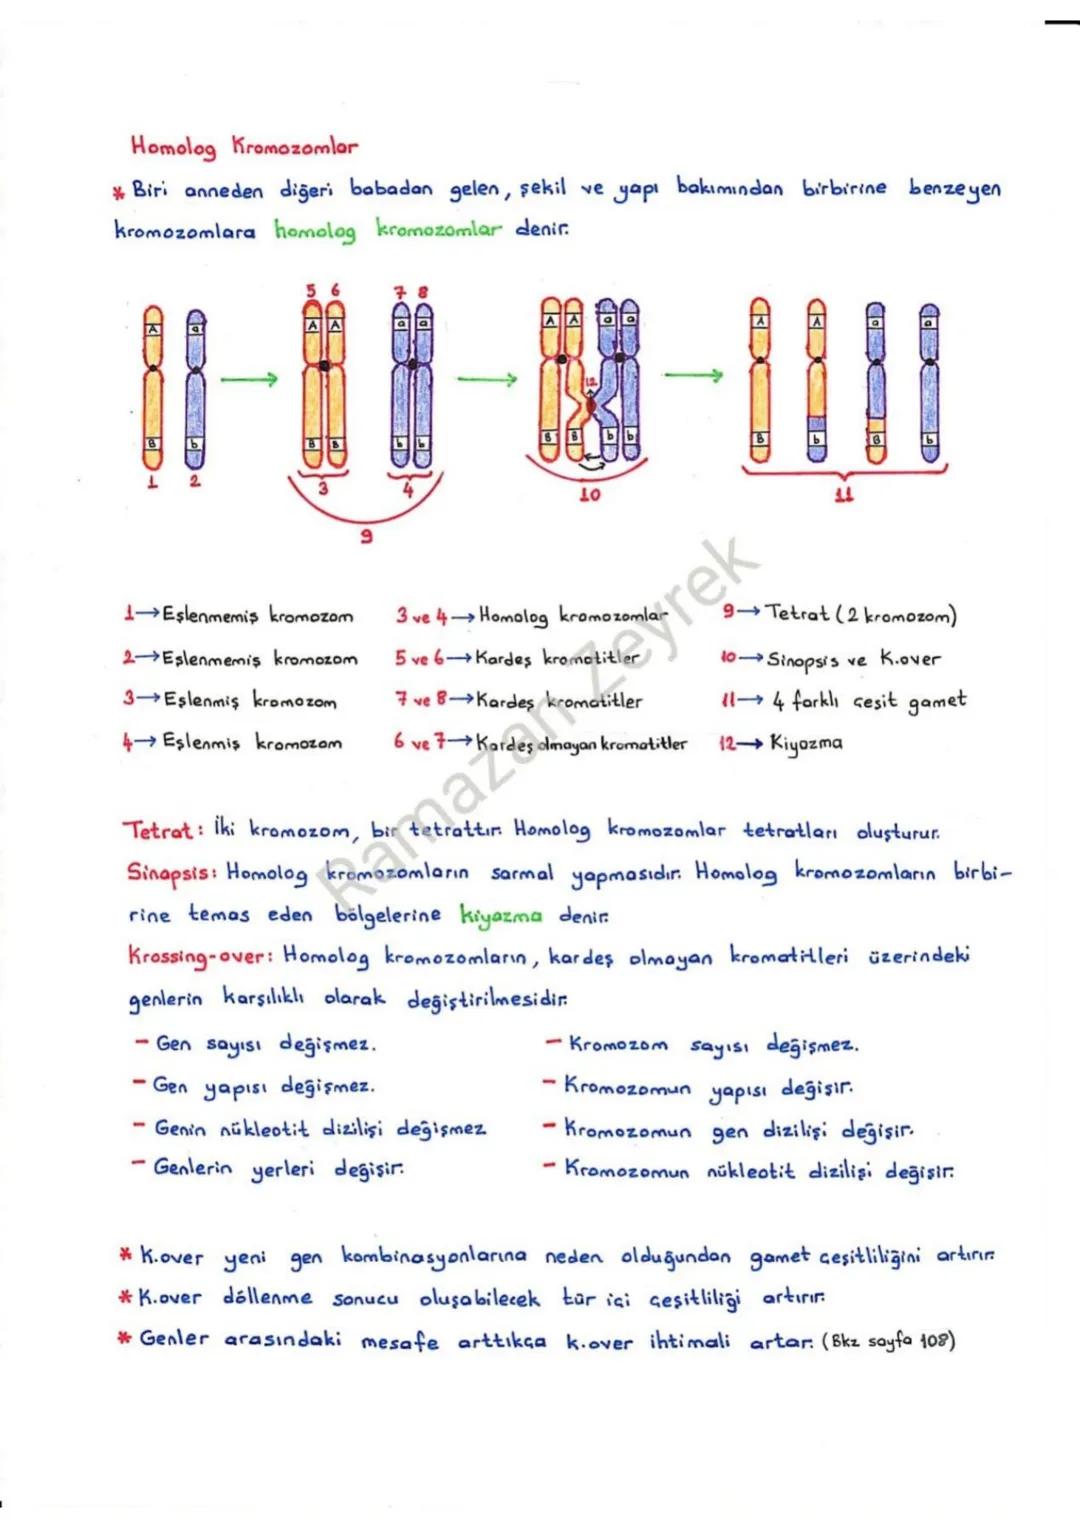 Homolog Kromozomlar
* Biri anneden diğeri babadan gelen, şekil ve yapı bakımından birbirine benzeyen
kromozomlara homolog kromozomlar denir.
5 6 7 8
A a A A a a A A a a A A a a
12
B b B B b b B B b b B b B b
1 2 3 4 10 11
9
1→Eşlenmemiş kromozom 3 ve 4→Homolog kromozomlar 9→Tetrat (2 kromozom)
2→Eşlenmemiş kromozom 5 ve 6→Kardeş kromatitler 10→Sinapsis ve K.over
3→Eşlenmiş kromozom 7 ve 8→Kardeş kromatitler 11→4 farklı çeşit gamet
4→Eşlenmiş kromozom 6 ve 7→Kardeş olmayan kromatitler 12→Kiyazma
Ramazan Zeyrek
Tetrat: İki kromozom, bir tetrattır. Homolog kromozomlar tetratları oluşturur.
Sinapsis: Homolog kromozomların sarmal yapmasıdır. Homolog kromozomların birbi-
rine temas eden bölgelerine kiyazma denir.
Krossing-over: Homolog kromozomların, kardeş olmayan kromatitleri üzerindeki
genlerin karşılıklı olarak değiştirilmesidir.
- Gen sayısı değişmez. - Kromozom sayısı değişmez.
- Gen yapısı değişmez. - Kromozomun yapısı değişir.
- Genin nükleotit dizilişi değişmez - Kromozomun gen dizilişi değişir.
- Genlerin yerleri değişir. - Kromozomun nükleotit dizilişi değişir.
* K.over yeni gen kombinasyonlarına neden olduğundan gamet çeşitliliğini artırır.
* K.over döllenme sonucu oluşabilecek tür içi çeşitliliği artırır.
* Genler arasındaki mesafe arttıkça k.over ihtimali artar. (Bkz sayfa 108)